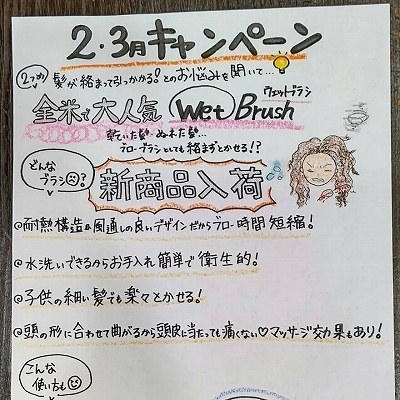 2・3月キャンペーン
2つめ! 髪が絡まって引っかかる!とのお悩みを聞いて…
ウェットブラシ
全米で大人気 Wet Brush
乾いた髪…ぬれた髪…
ブローブラシとしても絡まずとかせる!?
どんなブラシ?
新商品入荷
◎耐熱構造&風通しの良いデザインだからブロー時間短縮!
◎水洗いできるからお手入れ簡単で衛生的!
◎子供の細い髪でも楽々とかせる!
◎頭の形に合わせて曲がるから頭皮に当たっても痛くない♡マッサージ効果もあり!
こんな
使い方も